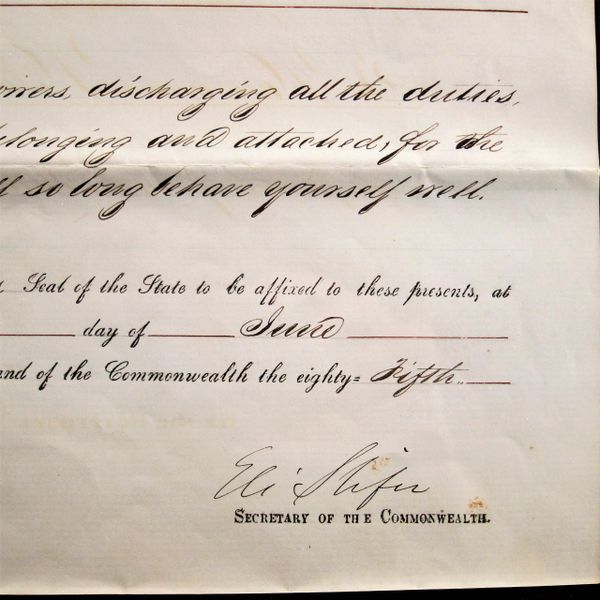 discharging all the duties,
belonging and attached, for the
so long behave yourself well.
Seal of the State to be affixed to these presents, at
day of June
and of the Commonwealth the eighty= Fifth.
Eli Slifer
SECRETARY OF THE COMMONWEALTH.